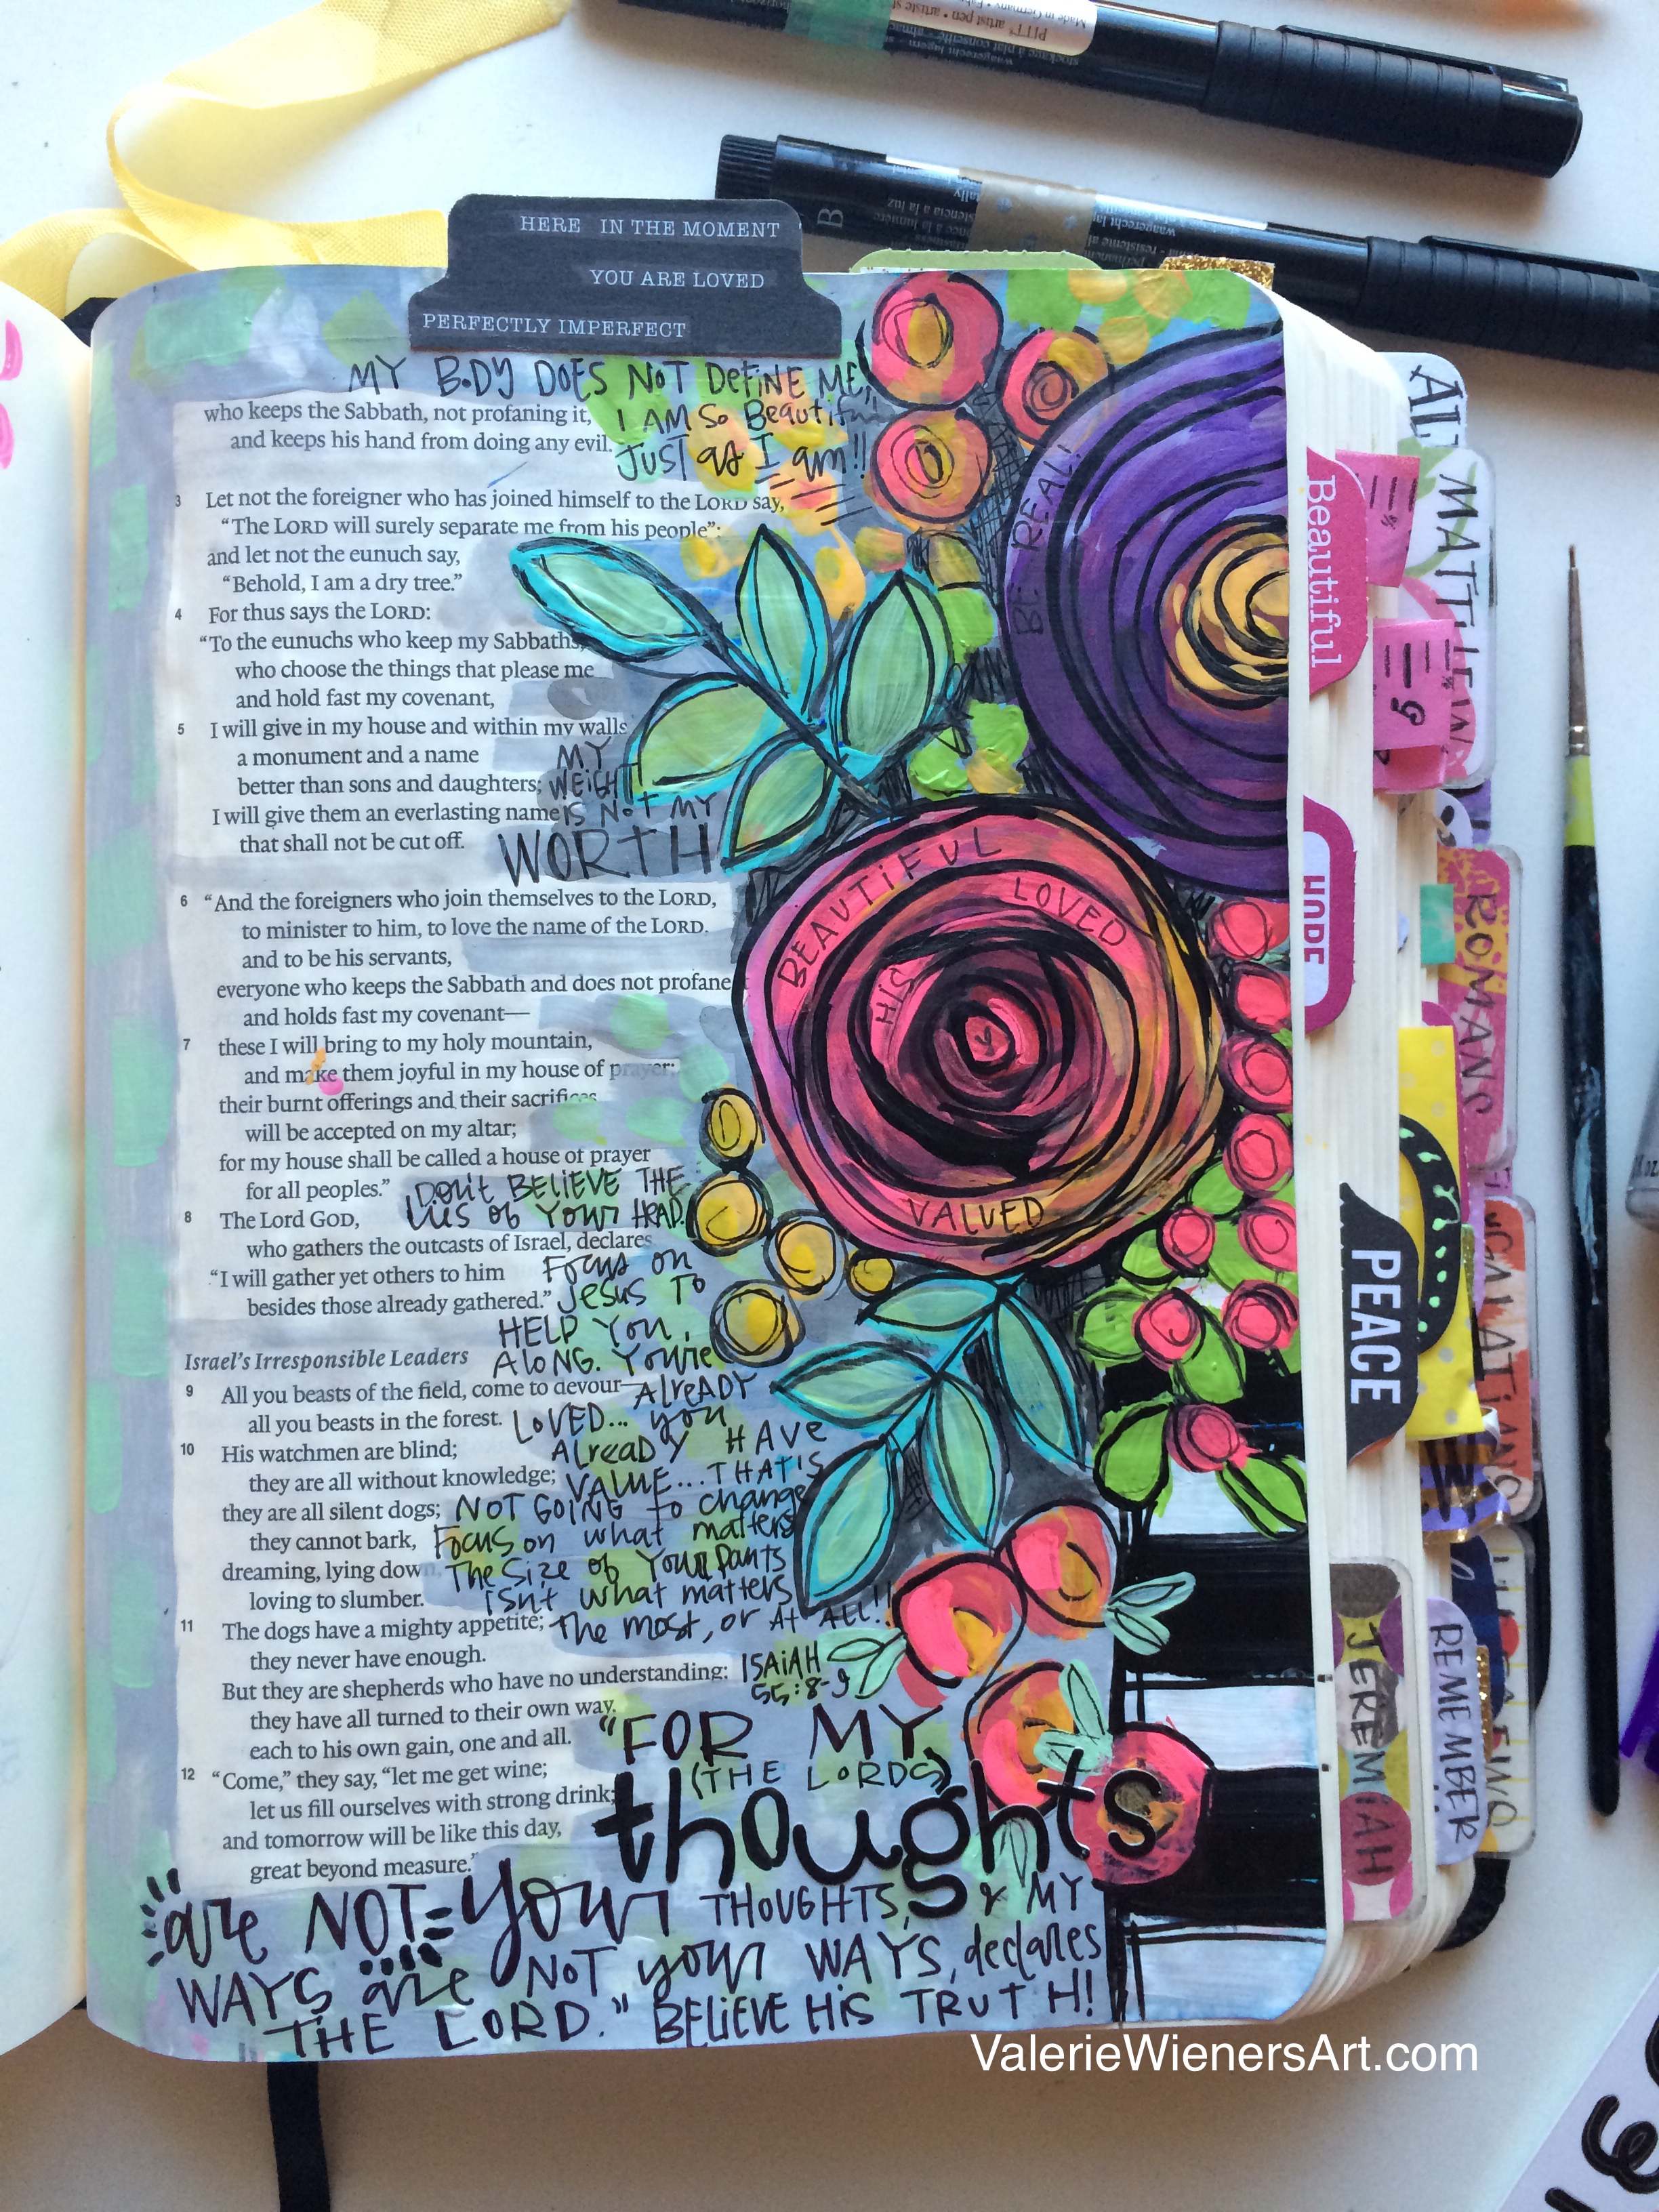 Made in Germany • Fab
PITT® artist pen • artiste
B
HERE IN THE MOMENT
YOU ARE LOVED
PERFECTLY IMPERFECT
MY BODY DOES NOT DEFINE ME,
who keeps the Sabbath, not profaning it,
I AM SO Beautiful
and keeps his hand from doing any evil.
JUST as I am!!
3 Let not the foreigner who has joined himself to the LORD say,
“The LORD will surely separate me from his people”;
and let not the eunuch say,
“Behold, I am a dry tree.”
4 For thus says the LORD:
“To the eunuchs who keep my Sabbaths,
who choose the things that please me
and hold fast my covenant,
5 I will give in my house and within my walls
a monument and a name
better than sons and daughters;
I will give them an everlasting name
that shall not be cut off.
MY
WEIGHT
IS NOT MY
WORTH
6 “And the foreigners who join themselves to the LORD,
to minister to him, to love the name of the LORD,
and to be his servants,
everyone who keeps the Sabbath and does not profane
and holds fast my covenant—
7 these I will bring to my holy mountain,
and make them joyful in my house of prayer;
their burnt offerings and their sacrifices
will be accepted on my altar;
for my house shall be called a house of prayer
for all peoples.”
8 The Lord GOD,
who gathers the outcasts of Israel, declares
“I will gather yet others to him
besides those already gathered.”
DON'T BELIEVE THE
Lies of YOUR HEAD.
Focus on
Jesus TO
HELP YOU
ALONG. You're
ALREADY
LOVED... you
Already HAVE
VALUE... THAT'S
NOT GOING to change
Focus on what matters
The Size of Your Pants
isn't what matters
the most, or At ALL!!
Israel's Irresponsible Leaders
9 All you beasts of the field, come to devour—
all you beasts in the forest.
10 His watchmen are blind;
they are all without knowledge;
they are all silent dogs;
they cannot bark,
dreaming, lying down
loving to slumber.
11 The dogs have a mighty appetite;
they never have enough.
But they are shepherds who have no understanding:
they have all turned to their own way,
each to his own gain, one and all.
12 “Come,” they say, “let me get wine;
let us fill ourselves with strong drink;
and tomorrow will be like this day,
great beyond measure.”
ISAIAH
55:8-9
“FOR MY
(THE LORDS)
thoughts
are NOT your THOUGHTS, & MY
WAYS are NOT your WAYS, declares
THE LORD.” BELIEVE HIS TRUTH!
BE REAL!
BEAUTIFUL
LOVED
HIS
VALUED
Beautiful
HOPE
PEACE
JEREMIAH
REMEMBER
MATTHEW
ROMANS
GALATIANS
ValerieWienersArt.com